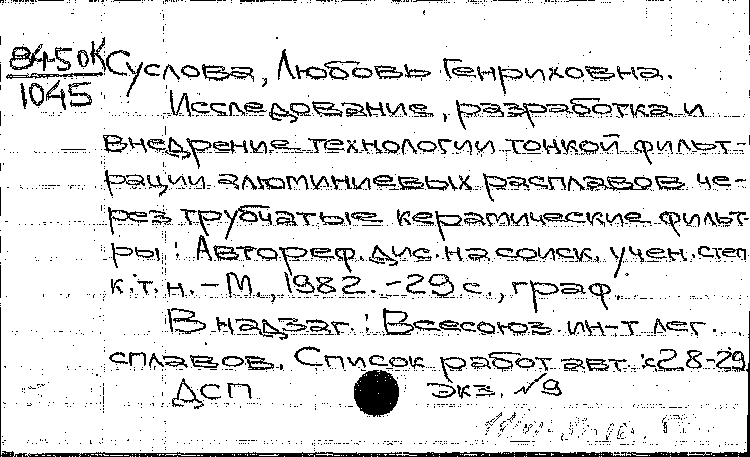 8450К Суслова, Любовь Генриховна.
1045
Исследование, разработка и
внедрение технологии тонкой фильт-
рации алюминиевых расплавов че-
рез трубчатые керамические фильт-
ры: Автореф. дис. на соиск. учен. степ
к.т.н. - М., 1982. - 29 с., граф.
В надзаг.: Всесоюз. ин-т лег.
сплавов. Список работ авт.: с 28-29
ДСП экз. №9